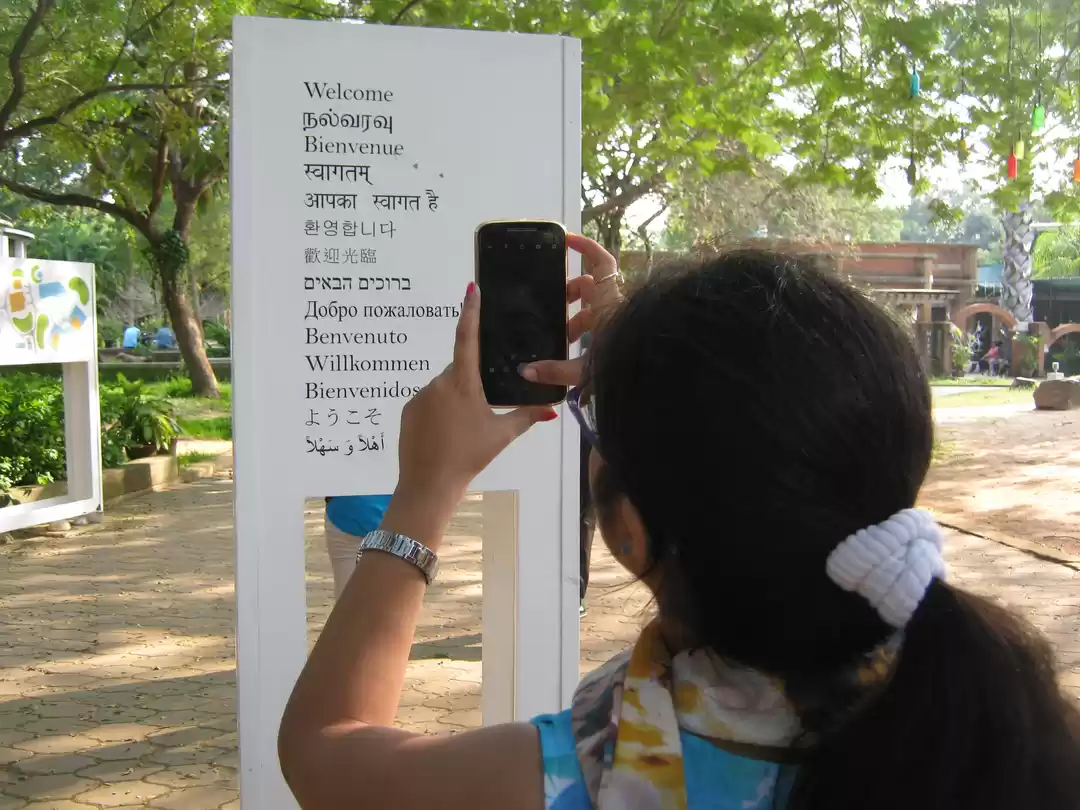 Welcome
நல்வரவு
Bienvenue
स्वागतम्
आपका स्वागत है
환영합니다
歡迎光臨
ברוכים הבאים
Добро пожаловать!
Benvenuto
Willkommen
Bienvenidos
ようこそ
أهْلاً وَ سَهْلاً